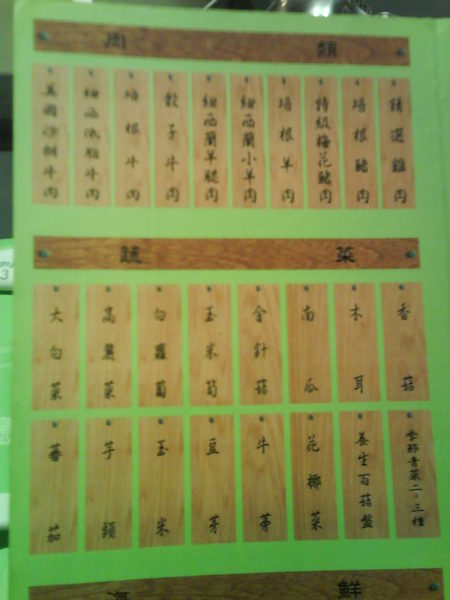 肉類
美國沙朗牛肉
培根牛肉
骰子牛肉
紐西蘭羊腿肉
紐西蘭小羊肉
培根羊肉
特級梅花豬肉
培根豬肉
精選雞肉
蔬菜
大白菜
高麗菜
白蘿蔔
玉米筍
金針菇
南瓜
木耳
香菇
蕃茄
芋頭
玉米
豆芽
牛蒡
花椰菜
養生百菇盤
季節青菜二~三種
海鮮